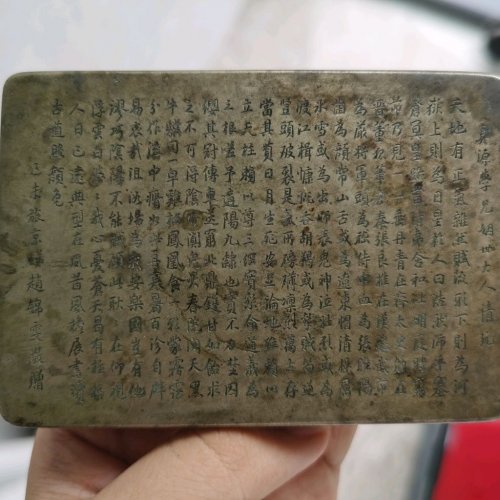 學兄姻世大人 清玩
天地有正氣雜然賦流形下則為河
嶽上則為日星於人曰浩然沛乎塞
蒼冥皇路當清夷含和吐明庭時窮
節乃見一一垂丹青在齊太史簡在
晉董狐筆在秦張良椎在漢蘇武節
為嚴將軍頭為嵇侍中血為張睢陽
齒為顏常山舌或為遼東帽清操厲
冰雪或為出師表鬼神泣壯烈或為
渡江楫慷慨吞胡羯或為擊賊笏逆
豎頭破裂是氣所磅礴凜烈萬古存
當其貫日月生死安足論地維賴以
立天柱賴以尊三綱實繫命道義為
之根嗟予遘陽九隸也實不力楚囚
纓其冠傳車送窮北鼎鑊甘如飴求
之不可得陰房闃鬼火春院閟天黑
牛驥同一皁雞棲鳳凰食一朝蒙霧露
分作溝中瘠如此再寒暑百沴自辟
易嗟哉沮洳場為我安樂國豈有他
繆巧陰陽不能賊顧此耿耿在仰視
浮雲白悠悠我心憂蒼天曷有極哲
人日已遠典型在夙昔風檐展書讀
古道照顏色
旅京 趙錦雲敬贈